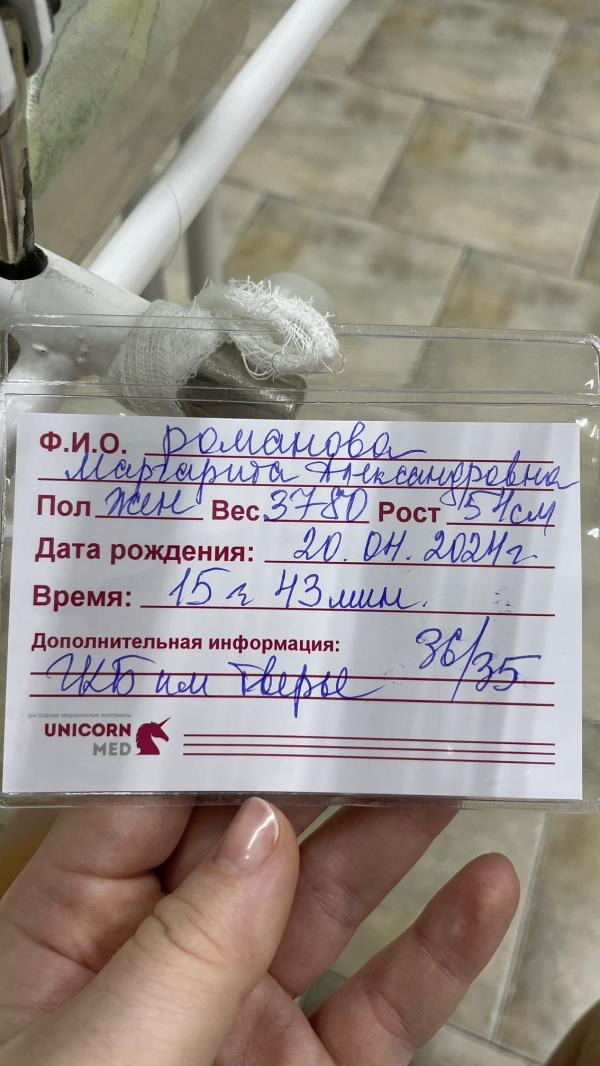 Ф.И.О. Романова
Маргарита Александровна
Пол жен Вес 3780 Рост 54см
Дата рождения: 20.04.2024г.
Время: 15 ч 43 мин.
Дополнительная информация: 36/35
ГКБ им Тверье
расходные медицинские материалы
UNICORN
MED